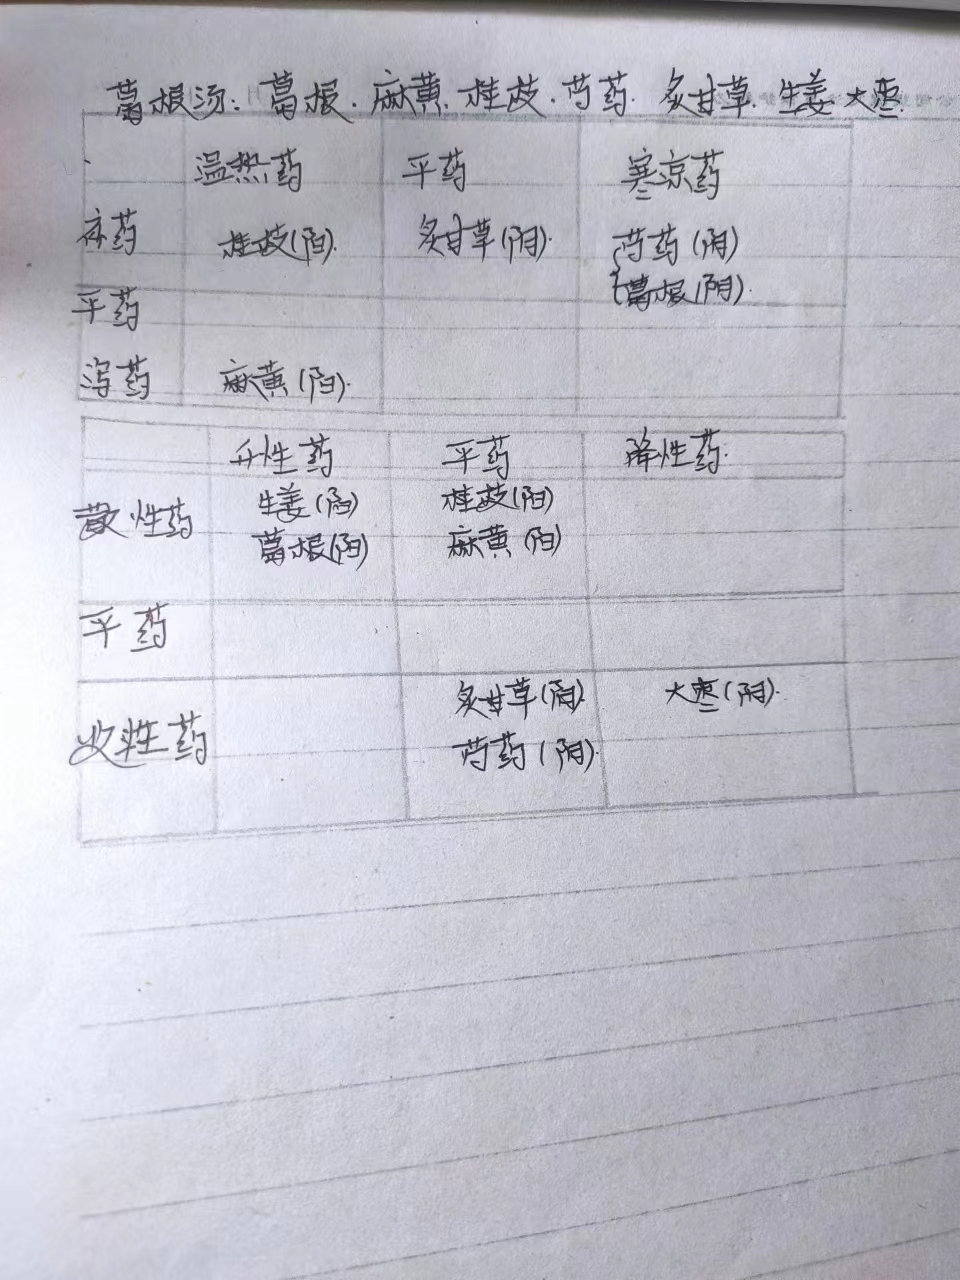 葛根汤：葛根．麻黄．桂枝．芍药．炙甘草．生姜 大枣．
温热药 平药 寒凉药
补药 桂枝(阳)． 炙甘草(阴)． 芍药(阴)
葛根(阴)．
平药
泻药 麻黄(阳)．
升性药 平药 降性药．
散性药 生姜(阳) 桂枝(阳)
葛根(阳) 麻黄(阳)
平药
收性药 炙甘草(阴) 大枣(阴)．
芍药(阴)．